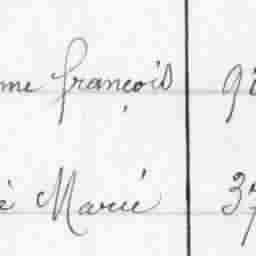 me françois
é Marie
37